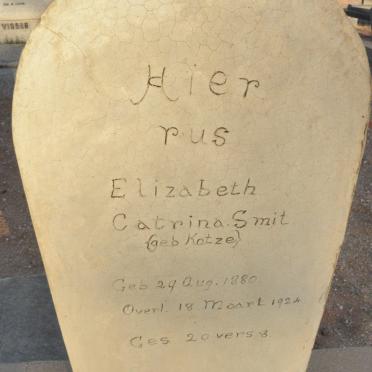 VISSER
Hier
rus
Elizabeth
Catrina. Smit
(geb Kotze)
Geb 29 Aug. 1880
Overl. 18 Maart 1924
Ges 20 vers 3.